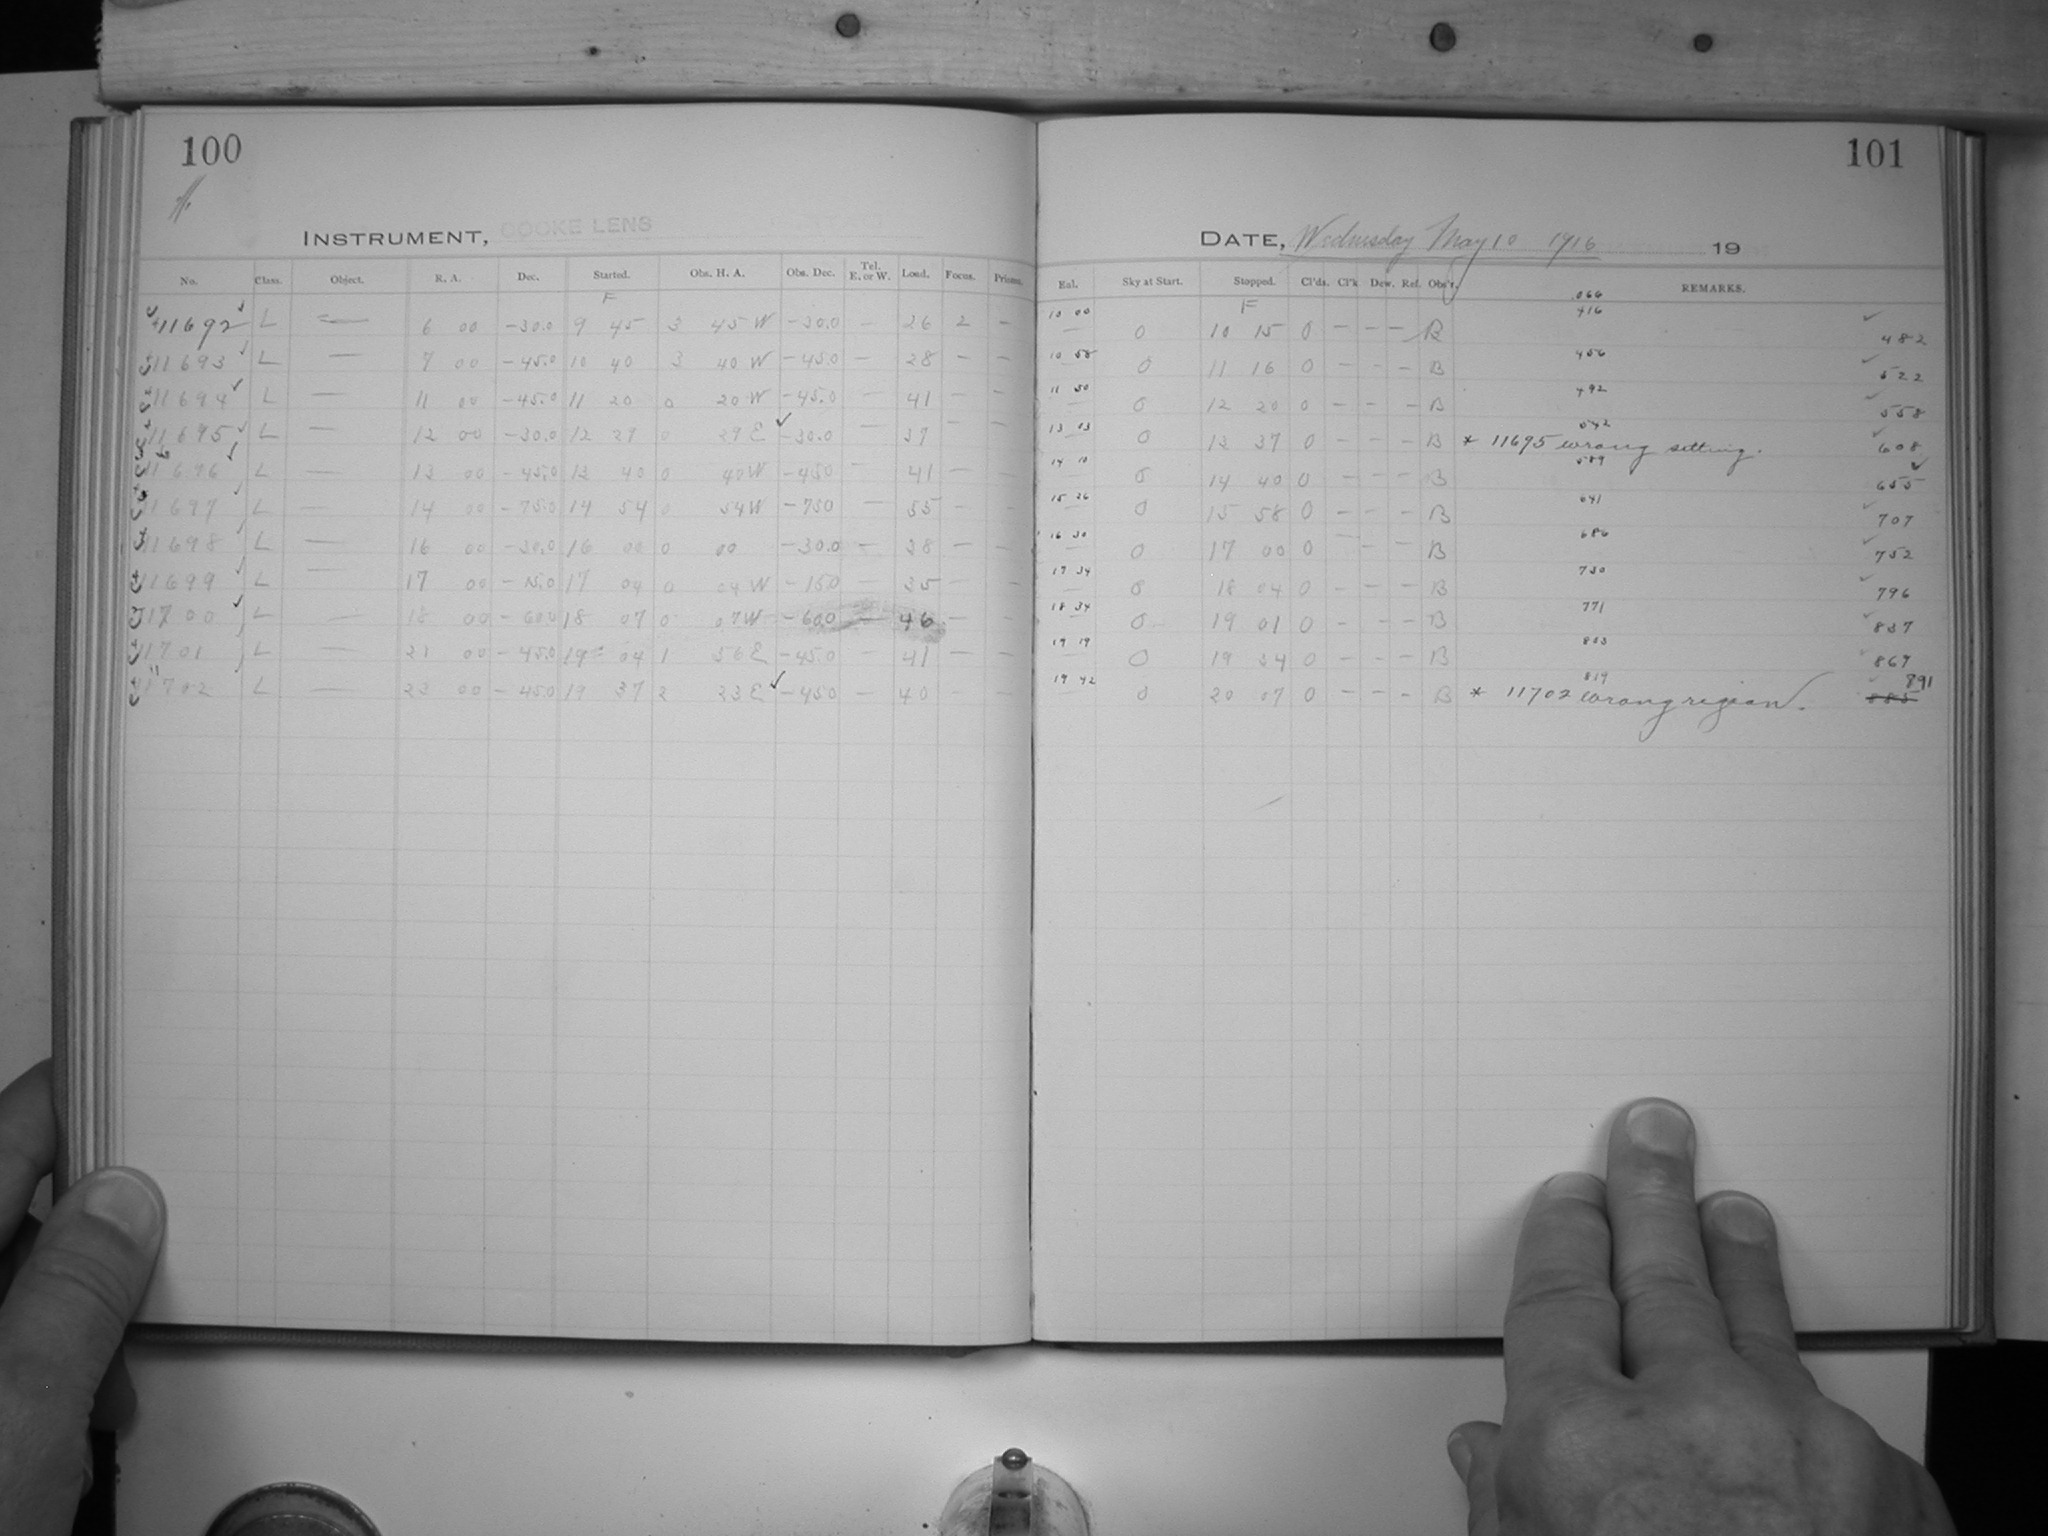 100
INSTRUMENT, COOKE LENS
No. Class. Object. R. A. Dec. Started. Obs. H. A. Obs. Dec. Tel. E. or W. Load. Focus. Prisms.
F
11692 L — 6 00 -30.0 9 45 3 45 W -30.0 — 26 2 —
11693 L — 7 00 -45.0 10 40 3 40 W -45.0 — 28 — —
11694 L — 11 00 -45.0 11 20 0 20 W -45.0 — 41 — —
11695 L — 12 00 -30.0 12 29 E -30.0 — 37 — —
11696 L — 13 00 -45.0 13 40 0 40 W -45.0 — 41 — —
11697 L — 14 00 -75.0 14 54 0 54 W -75.0 — 55 — —
11698 L — 16 00 -30.0 16 00 0 00 -30.0 — 38 — —
11699 L — 17 00 -15.0 17 04 0 04 W -15.0 — 35 — —
11700 L — 18 00 -60.0 18 07 0 07 W -60.0 — 46 — —
11701 L — 21 00 -45.0 19 04 1 56 E -45.0 — 41 — —
11702 L — 22 00 -45.0 19 37 2 23 E -45.0 — 40 — —
101
DATE, Wednesday May 10 1916 19
Eal. Sky at Start. Stopped. Cl'ds. Cl'k Dew. Ref. Obs'r. REMARKS.
F .066
10 00 0 10 15 0 — — — B 416 482
10 58 0 11 16 0 — — — B 456 522
11 50 0 12 20 0 — — — B 492 558
13 03 0 13 37 0 — — — B 542 * 11695 wrong setting. 608
14 10 0 14 40 0 — — — B 589 655
15 26 0 15 58 0 — — — B 641 707
16 30 0 17 00 0 — — — B 686 752
17 34 0 18 04 0 — — — B 730 796
18 34 0 19 01 0 — — — B 771 837
19 19 0 19 34 0 — — — B 803 869
19 42 0 20 07 0 — — — B 819 * 11702 wrong region. 891